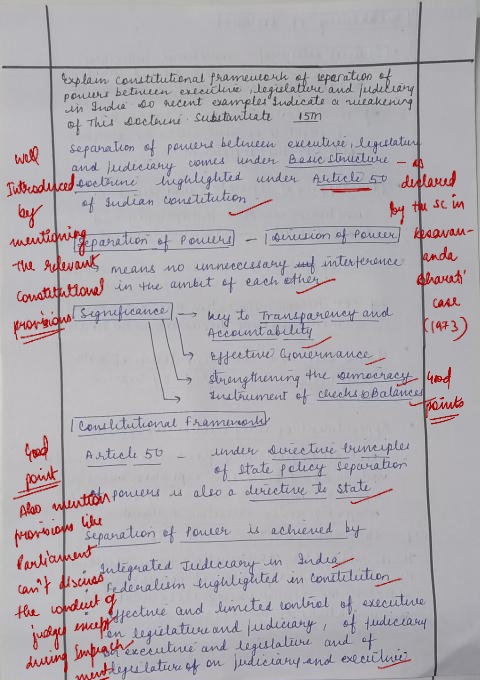 Explain constitutional framework of separation of
powers between executive, legislature and judiciary
in India. Do recent examples indicate a weakening
of This Doctrine. Substantiate 15M
Separation of powers between executive, legislature
and judiciary comes under Basic Structure
Doctrine highlighted under Article 50
of Indian constitution.
Well
Introduced
by
mentioning
the relevant
Constitutional
provisions
- as
declared
by the SC in
Kesavan-
anda
Bharati
case
(1973)
Separation of Powers - Division of Power
↳ means no unneccesary interference
in the ambit of each other
Significance → key to Transparency and
Accountability
→ Effective Governance
→ strengthening the Democracy
→ Instrument of checks & Balances
Good
points
Constitutional Framework
Article 50 - under Directive Principles
of State Policy separation
of powers is also a directive to State
Good
point
Also mention
provisions like
Parliament
can't discuss
the conduct of
judges except
during Impeach
ment
Separation of Power is achieved by
Integrated Judeciary in India
Federalism highlighted in Constitution
Effective and limited control of executive
on legislature and judiciary, of judiciary
on executive and legislature and of
legislature of on judiciary and executive